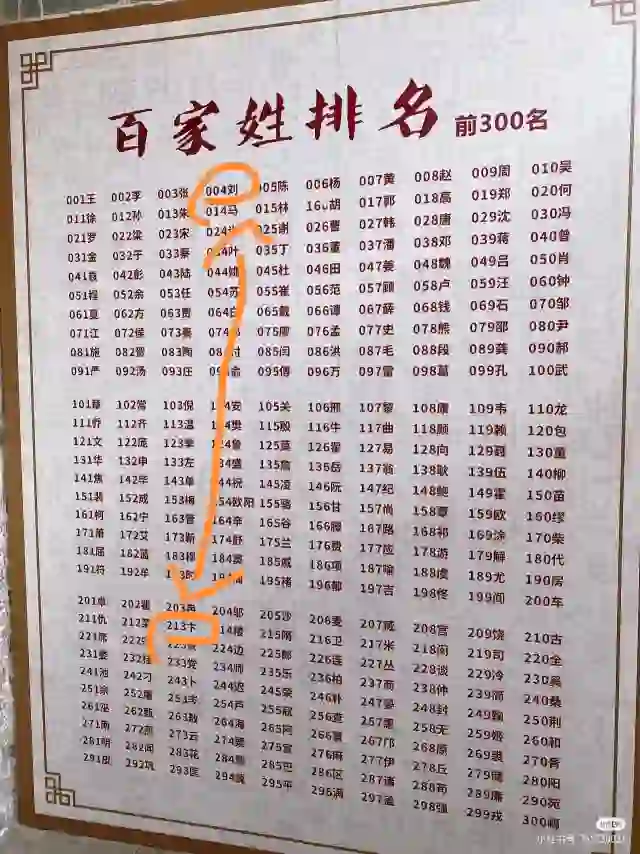 百家姓排名 前300名
001王 002李 003张 004刘 005陈 006杨 007黄 008赵 009周 010吴
011徐 012孙 013朱 014马 015林 胡 017郭 018高 019郑 020何
021罗 022梁 023宋 025谢 026曹 027韩 028唐 029沈 030冯
031金 032于 033秦 叶 035丁 036董 037潘 038邓 039蒋 040曾
041袁 042彭 043陆 044姚 045杜 046田 047姜 048魏 049吕 050肖
051程 052余 053任 054苏 055崔 056范 057顾 058卢 059汪 060钟
061夏 062方 063贾 064白 065戴 066谭 067薛 068钱 069石 070邹
071江 072侯 073秦 075廖 076孟 077史 078熊 079邵 080尹
081施 082曹 083陶 付 085闫 086洪 087毛 088段 089龚 090郝
091严 092汤 093庄 俞 095傅 096万 097雷 098葛 099孔 100武
101章 102常 103倪 安 105关 106邢 107黎 108康 109韦 110龙
111乔 112齐 113温 樊 115殷 116牛 117曲 118顾 119赖 120包
121文 122庞 123季 鲁 125莫 126翟 127易 128向 129聂 130童
131华 132申 133左 盛 135詹 136岳 137翁 138耿 139伍 140柳
141焦 142毕 143单 祝 145凌 146阮 147纪 148鲍 149霍 150苗
151裴 152成 153梅 154欧阳 155骆 156甘 157尚 158覃 159欧 160缪
161柯 162宁 163管 164辛 165谷 166滕 167路 168祁 169涂 170柴
171蒲 172艾 173靳 174舒 175兰 176费 177应 178游 179解 180代
181屈 182蓝 183穆 184窦 185戚 186项 187喻 188虞 189尤 190房
191符 192牟 195褚 196郁 197吉 198佟 199闻 200车
201卓 202瞿 203冉 204邬 205沙 206麦 207臧 208宫 209饶 210古
211仇 212 213卞 楼 215隋 216卫 217米 218闵 219司 220全
221席 224边 225郎 226连 227丛 228谈 229冷 230
231娄 232桂 233党 234师 235乐 236柏 237 238仲 239简 240桑
241池 242刁 243卜 244迟 245荣 246朴 247晏 248封 249鞠 250荆
251宗 252屠 254芦 255寇 256查 257 258无 259姬 260和
261巫 262甄 263敖 264海 265阿 266冀 267邝 268原 269裘 270胥
271 272燕 273云 274 275宣 276麻 277伊 278丘 279 280阳
281明 282闻 283花 284 285巴 286区 287诸 288苟 289廉 290苑
291 292巩 293匡 294冼 295平 296满 297孟 298强 299戎 300
小红书